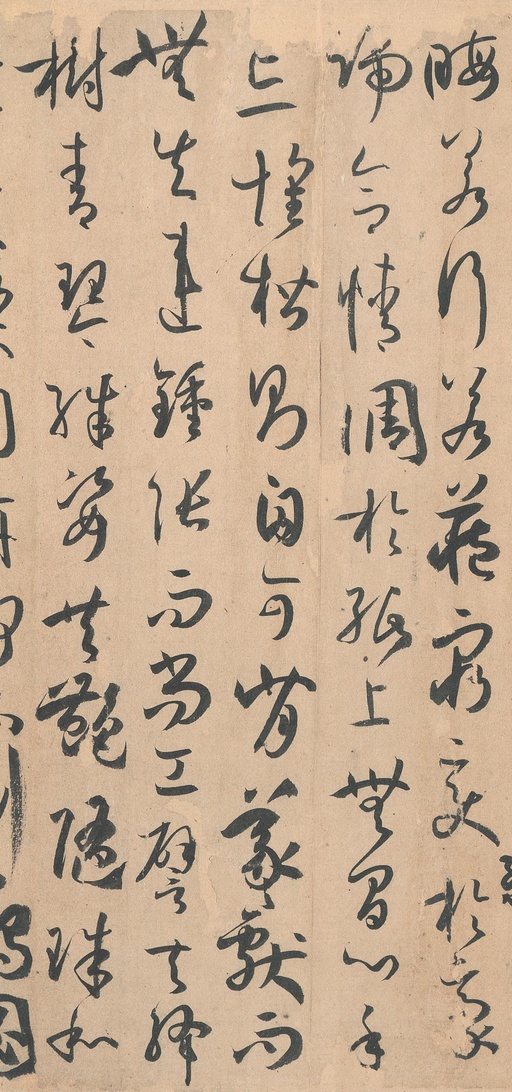 晦若行若藏窮變態於豪
端合情調於紙上無間心手
忘懷楷則自可背羲獻而
無失違鍾張而尚工譬夫絳
樹青琴殊姿共艷隨珠和